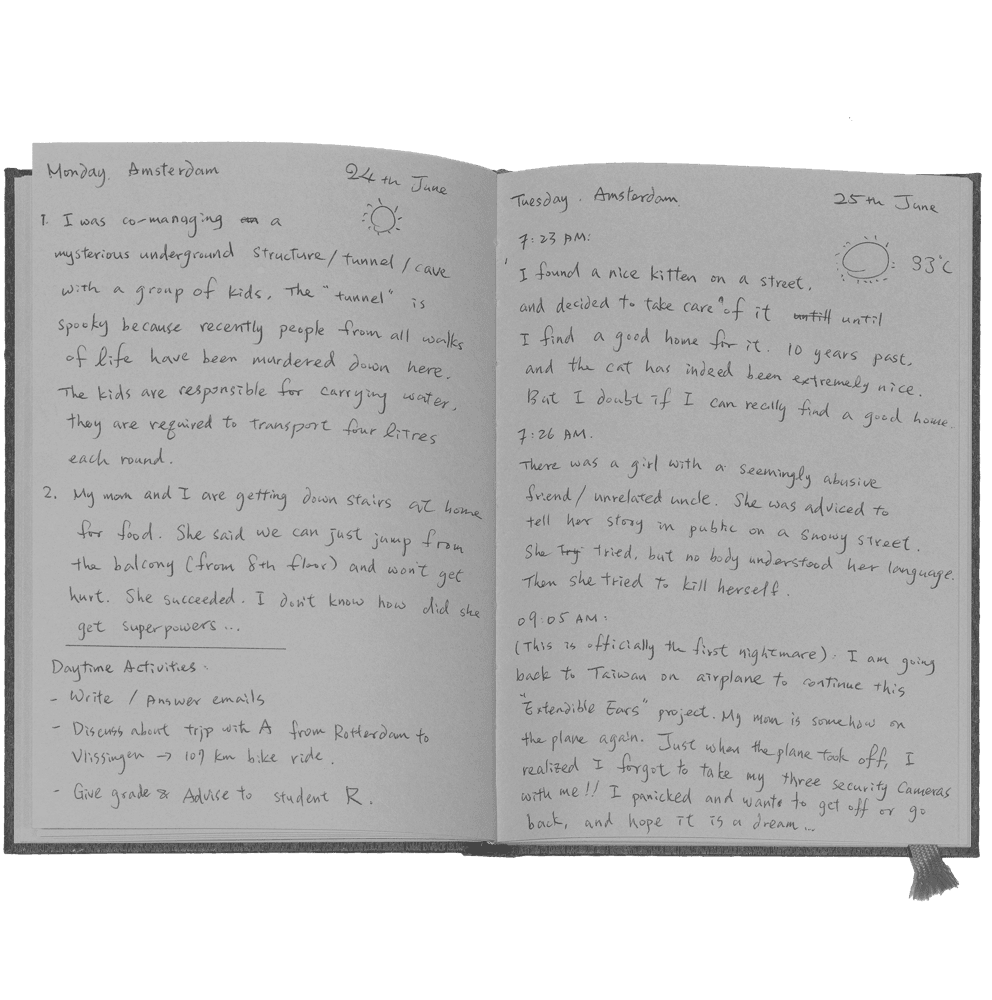 Monday. Amsterdam 24th June
1. I was co-managing a
mysterious underground structure/tunnel/cave
with a group of kids. The "tunnel" is
spooky because recently people from all walks
of life have been murdered down here.
The kids are responsible for carrying water,
they are required to transport four litres
each round.
2. My mom and I are getting down stairs at home
for food. She said we can just jump from
the balcony (from 8th floor) and won't get
hurt. She succeeded. I don't know how did she
get superpowers...
Daytime Activities:
- Write / Answer emails
- Discuss about trip with A from Rotterdam to
Vlissingen → 107 km bike ride.
- Give grade & Advise to student R.
Tuesday. Amsterdam 25th June
7:23 AM:
33°C
I found a nice kitten on a street,
and decided to take care of it untill until
I find a good home for it. 10 years past,
and the cat has indeed been extremely nice.
But I doubt if I can really find a good home.
7:26 AM.
There was a girl with a seemingly abusive
friend/unrelated uncle. She was adviced to
tell her story in public on a snowy street.
She Try tried, but no body understood her language.
Then she tried to kill herself.
09:05 AM:
(This is officially the first nightmare). I am going
back to Taiwan on airplane to continue this
"Extendible Ears" project. My mom is somehow on
the plane again. Just when the plane took off, I
realized I forgot to take my three security cameras
with me!! I panicked and wants to get off or go
back, and hope it is a dream...